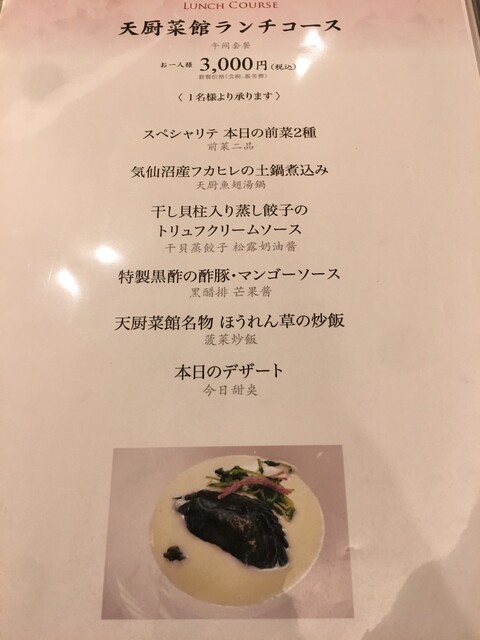 LUNCH COURSE
天厨菜館ランチコース
午间套餐
お一人様 3,000円(税込)
套餐价格(含税·服务费)
〈 1名様より承ります 〉
スペシャリテ 本日の前菜2種
前菜二品
気仙沼産フカヒレの土鍋煮込み
天厨魚翅湯鍋
干し貝柱入り蒸し餃子の
トリュフクリームソース
干貝蒸餃子 松露奶油醬
特製黒酢の酢豚・マンゴーソース
黑醋排 芒果醬
天厨菜館名物 ほうれん草の炒飯
菠菜炒飯
本日のデザート
今日甜点